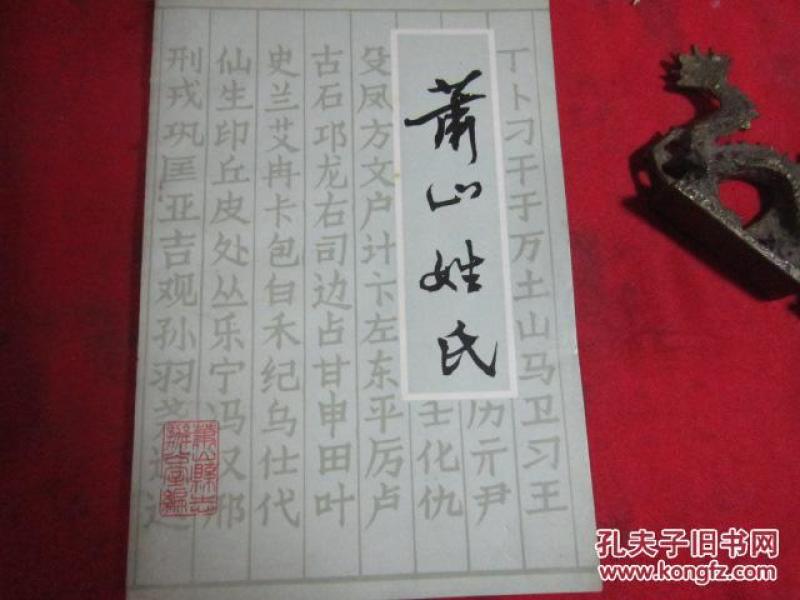 萧山姓氏
丁卜刁干于万土山马卫习王
历亓尹
壬化仇
殳凤方文户计卞左东平厉卢
古石邛龙右司边占甘申田叶
史兰艾冉卡包白禾纪乌仕代
仙生印丘皮处丛乐宁冯汉邢
刑戎巩匡亚吉观孙羽
萧山縣志
辦公室編
孔夫子旧书网
www.kongfz.com